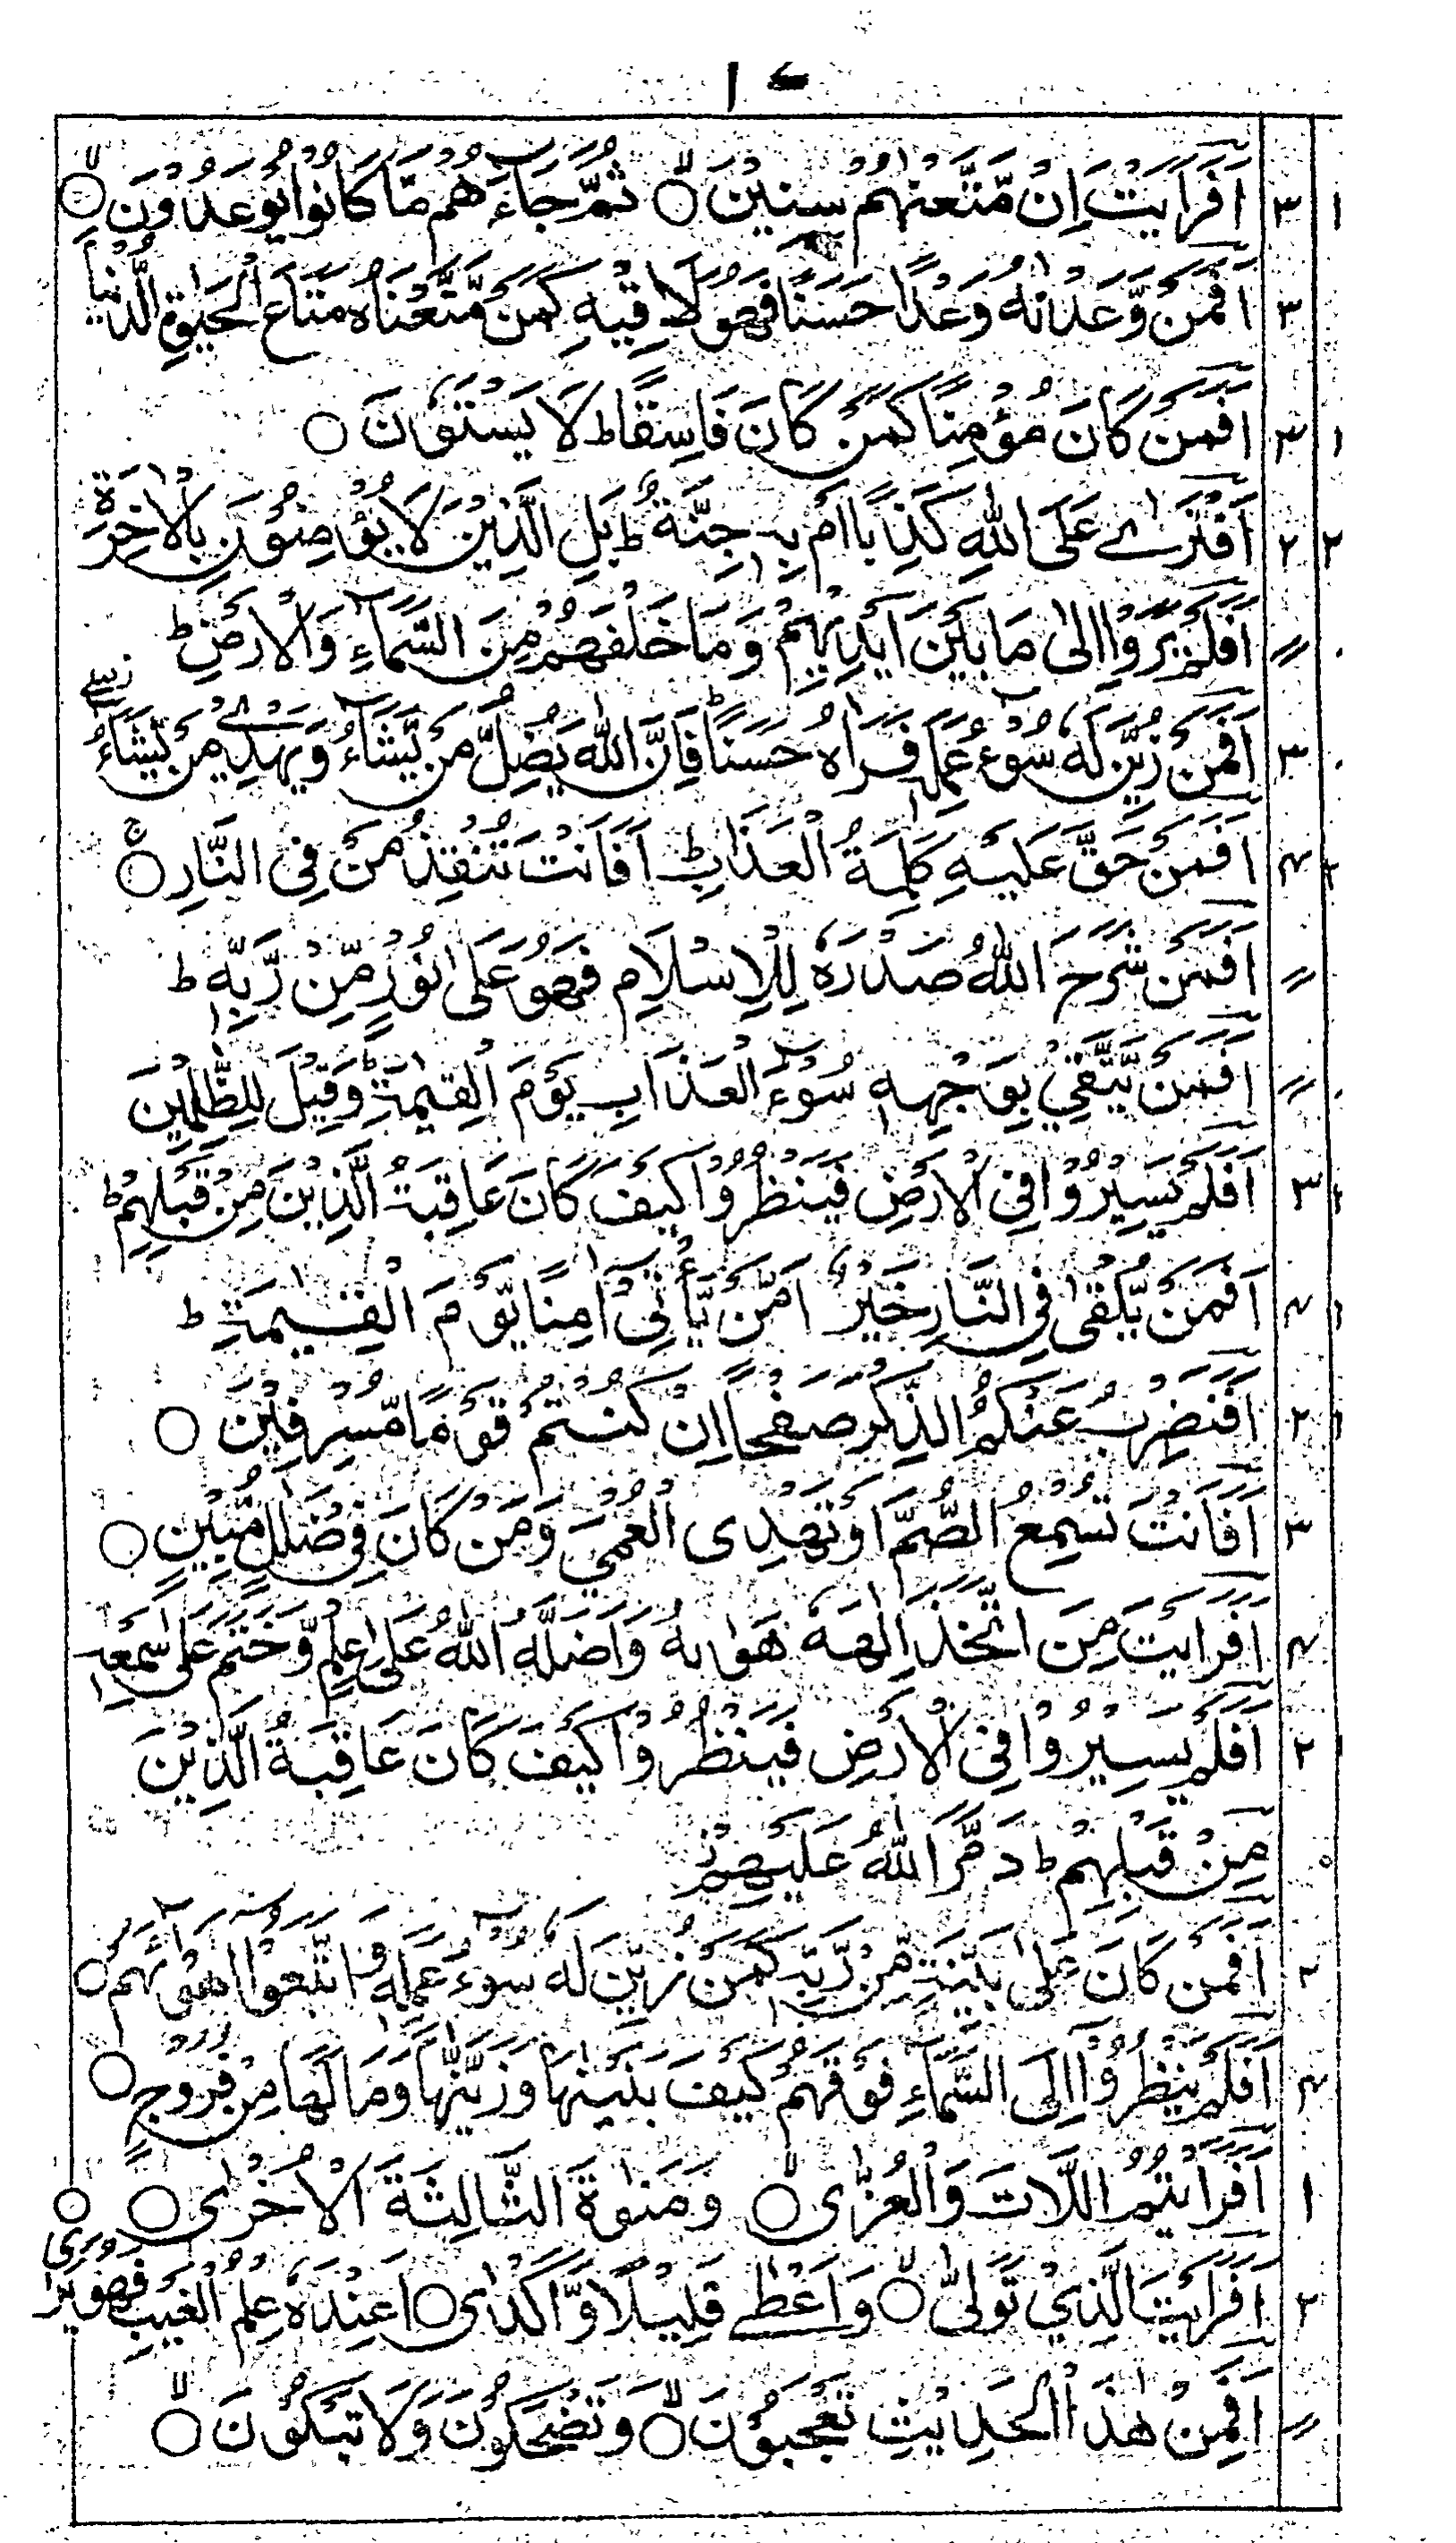 اَفَرَاَيْتَ اِنْ مَّتَّعْنٰهُمْ سِنِيْنَ ۙ ثُمَّ جَآءَهُمْ مَّا كَانُوْا يُوْعَدُوْنَ ۙ ٣ ١
اَفَمَنْ وَّعَدْنٰهُ وَعْدًا حَسَنًا فَهُوَ لَاقِيْهِ كَمَنْ مَّتَّعْنَاهُ مَتَاعَ الْحَيٰوةِ الدُّنْيَا ٣
اَفَمَنْ كَانَ مُؤْمِنًا كَمَنْ كَانَ فَاسِقًا ط لَا يَسْتَوٗنَ ○ ٣ ١
اَفْتَرٰے عَلَى اللّٰهِ كَذِبًا اَمْ بِهٖ جِنَّةٌ ط بَلِ الَّذِيْنَ لَا يُؤْمِنُوْنَ بِالْاٰخِرَةِ ٢ ٢
اَفَلَمْ يَرَوْا اِلٰى مَا بَيْنَ اَيْدِيْهِمْ وَمَا خَلْفَهُمْ مِنَ السَّمَآءِ وَالْاَرْضِ ط ″
اَفَمَنْ زُيِّنَ لَهٗ سُوْٓءُ عَمَلِهٖ فَرَاٰهُ حَسَنًا ط فَاِنَّ اللّٰهَ يُضِلُّ مَنْ يَّشَآءُ وَيَهْدِيْ مَنْ يَّشَآءُ ٣
اَفَمَنْ حَقَّ عَلَيْهِ كَلِمَةُ الْعَذَابِ ط اَفَاَنْتَ تُنْقِذُ مَنْ فِى النَّارِ ○ ج ٤
اَفَمَنْ شَرَحَ اللّٰهُ صَدْرَهٗ لِلْاِسْلَامِ فَهُوَ عَلٰى نُوْرٍ مِّنْ رَّبِّهٖ ط ″
اَفَمَنْ يَّتَّقِيْ بِوَجْهِهٖ سُوْٓءَ الْعَذَابِ يَوْمَ الْقِيٰمَةِ ط وَقِيْلَ لِلظّٰلِمِيْنَ ″
اَفَلَمْ يَسِيْرُوْا فِى الْاَرْضِ فَيَنْظُرُوْا كَيْفَ كَانَ عَاقِبَةُ الَّذِيْنَ مِنْ قَبْلِهِمْ ط ٣
اَفَمَنْ يُّلْقٰى فِى النَّارِ خَيْرٌ اَمَّنْ يَّاْتِيْٓ اٰمِنًا يَّوْمَ الْقِيٰمَةِ ط ٤
اَفَنَضْرِبُ عَنْكُمُ الذِّكْرَ صَفْحًا اِنْ كُنْتُمْ قَوْمًا مُّسْرِفِيْنَ ○ ٢
اَفَاَنْتَ تُسْمِعُ الصُّمَّ اَوْ تَهْدِى الْعُمْيَ وَمَنْ كَانَ فِيْ ضَلٰلٍ مُّبِيْنٍ ○ ٣
اَفَرَاَيْتَ مَنِ اتَّخَذَ اِلٰهَهٗ هَوٰىهُ وَاَضَلَّهُ اللّٰهُ عَلٰى عِلْمٍ وَّخَتَمَ عَلٰى سَمْعِهٖ ٤
اَفَلَمْ يَسِيْرُوْا فِى الْاَرْضِ فَيَنْظُرُوْا كَيْفَ كَانَ عَاقِبَةُ الَّذِيْنَ ٢
مِنْ قَبْلِهِمْ ط دَمَّرَ اللّٰهُ عَلَيْهِمْ ز
اَفَمَنْ كَانَ عَلٰى بَيِّنَةٍ مِّنْ رَّبِّهٖ كَمَنْ زُيِّنَ لَهٗ سُوْٓءُ عَمَلِهٖ وَاتَّبَعُوْٓا اَهْوَآءَهُمْ ○ ٢
اَفَلَمْ يَنْظُرُوْٓا اِلَى السَّمَآءِ فَوْقَهُمْ كَيْفَ بَنَيْنٰهَا وَزَيَّنّٰهَا وَمَا لَهَا مِنْ فُرُوْجٍ ○ ٤
اَفَرَاَيْتُمُ اللّٰتَ وَالْعُزّٰى ۙ وَمَنٰوةَ الثَّالِثَةَ الْاُخْرٰى ○ ١
اَفَرَاَيْتَ الَّذِيْ تَوَلّٰى ۙ وَاَعْطٰے قَلِيْلًا وَّاَكْدٰى ○ اَعِنْدَهٗ عِلْمُ الْغَيْبِ فَهُوَ يَرٰى ○ ٢
اَفَمِنْ هٰذَا الْحَدِيْثِ تَعْجَبُوْنَ ۙ وَتَضْحَكُوْنَ وَلَا تَبْكُوْنَ ۙ ″